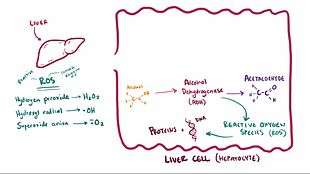 LIVER
ROS
Hydrogen peroxide → H₂O₂
Hydroxyl radical → ·OH
Superoxide anion → ·O₂
Alcohol
Alcohol
Dehydrogenase
(ADH)
ACETALDEHYDE
O
C-C
H
DNA
PROTEINS +
REACTIVE OXYGEN
SPECIES (ROS)
LIVER CELL (HEPATOCYTE)